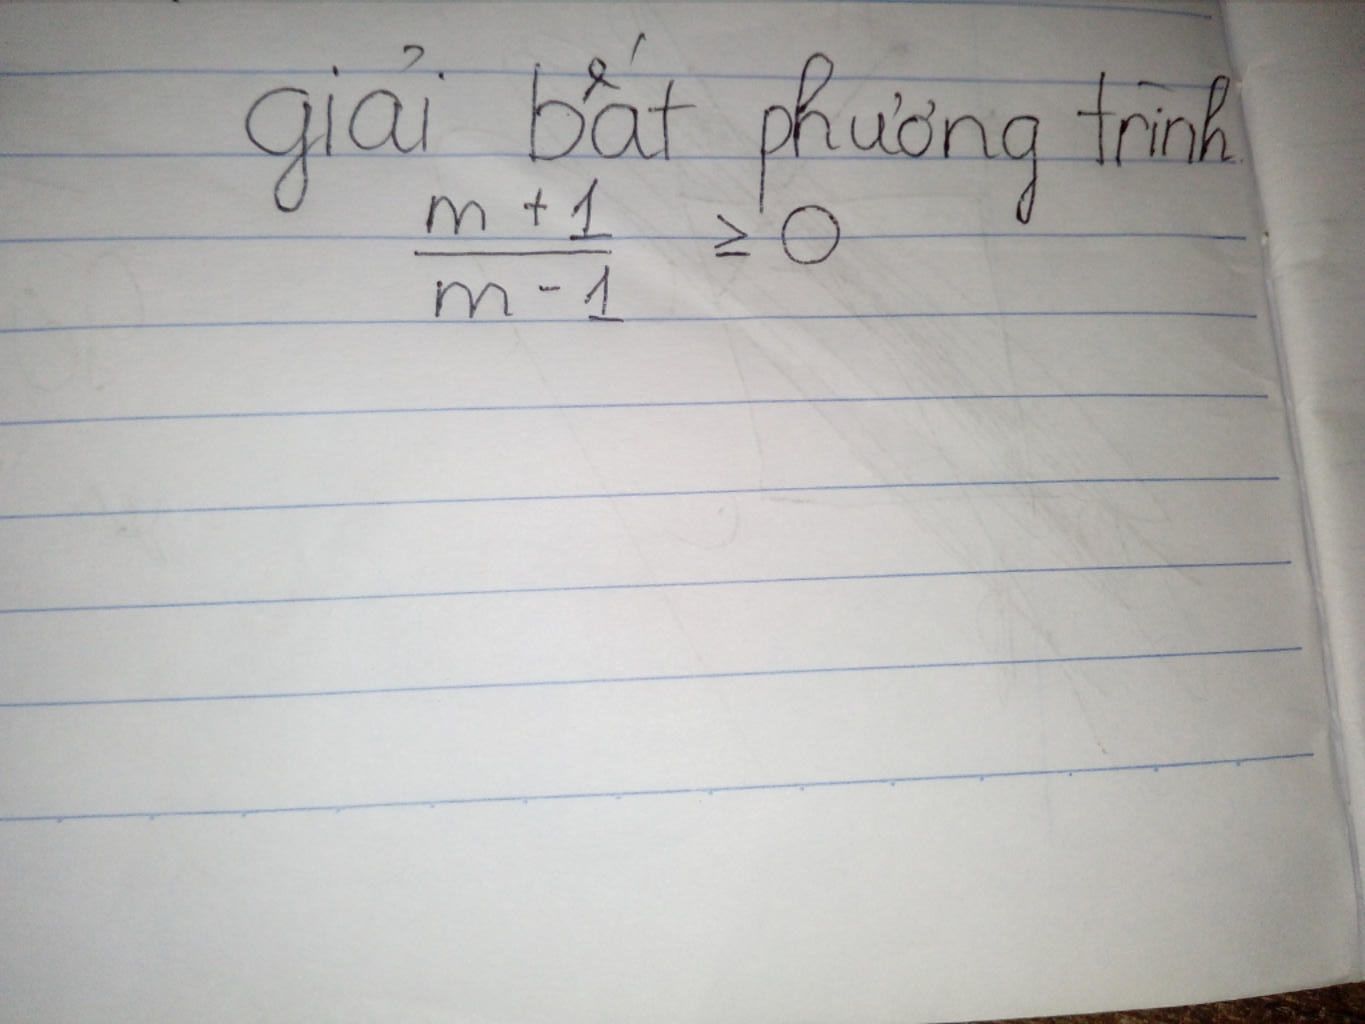 giải bất phương trình
m + 1
m - 1
≥ 0